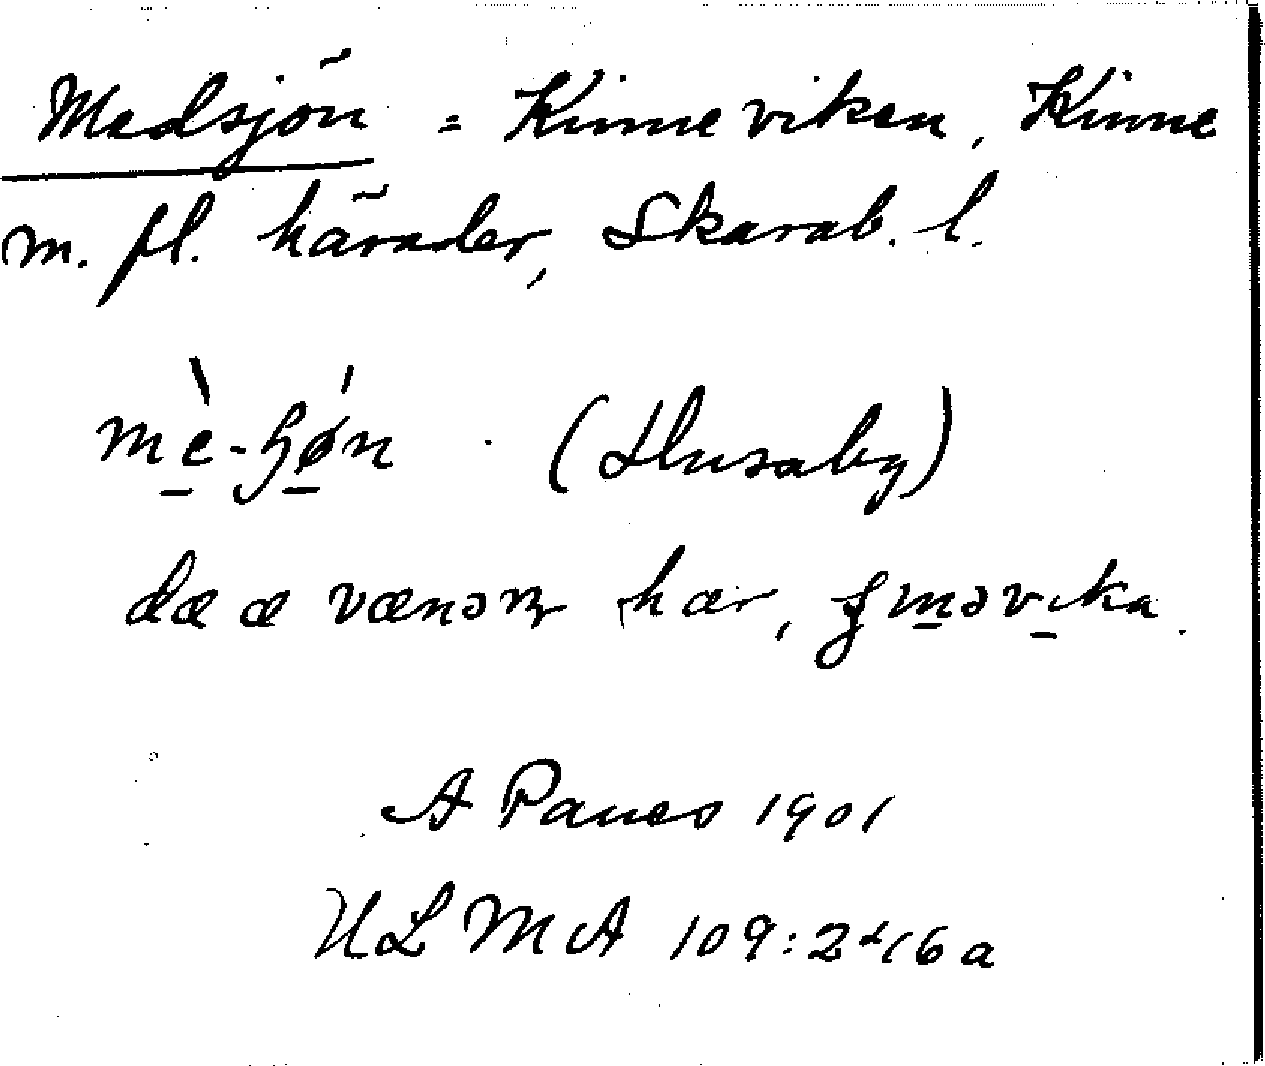 Medsjön = Kinneviken, Kinne
m. fl. härader, Skarab. l.
mè-ʃǿn (Husaby)
dæ æ vænəɳ hær,
A Panes 1901
ULMA 109:2 16a